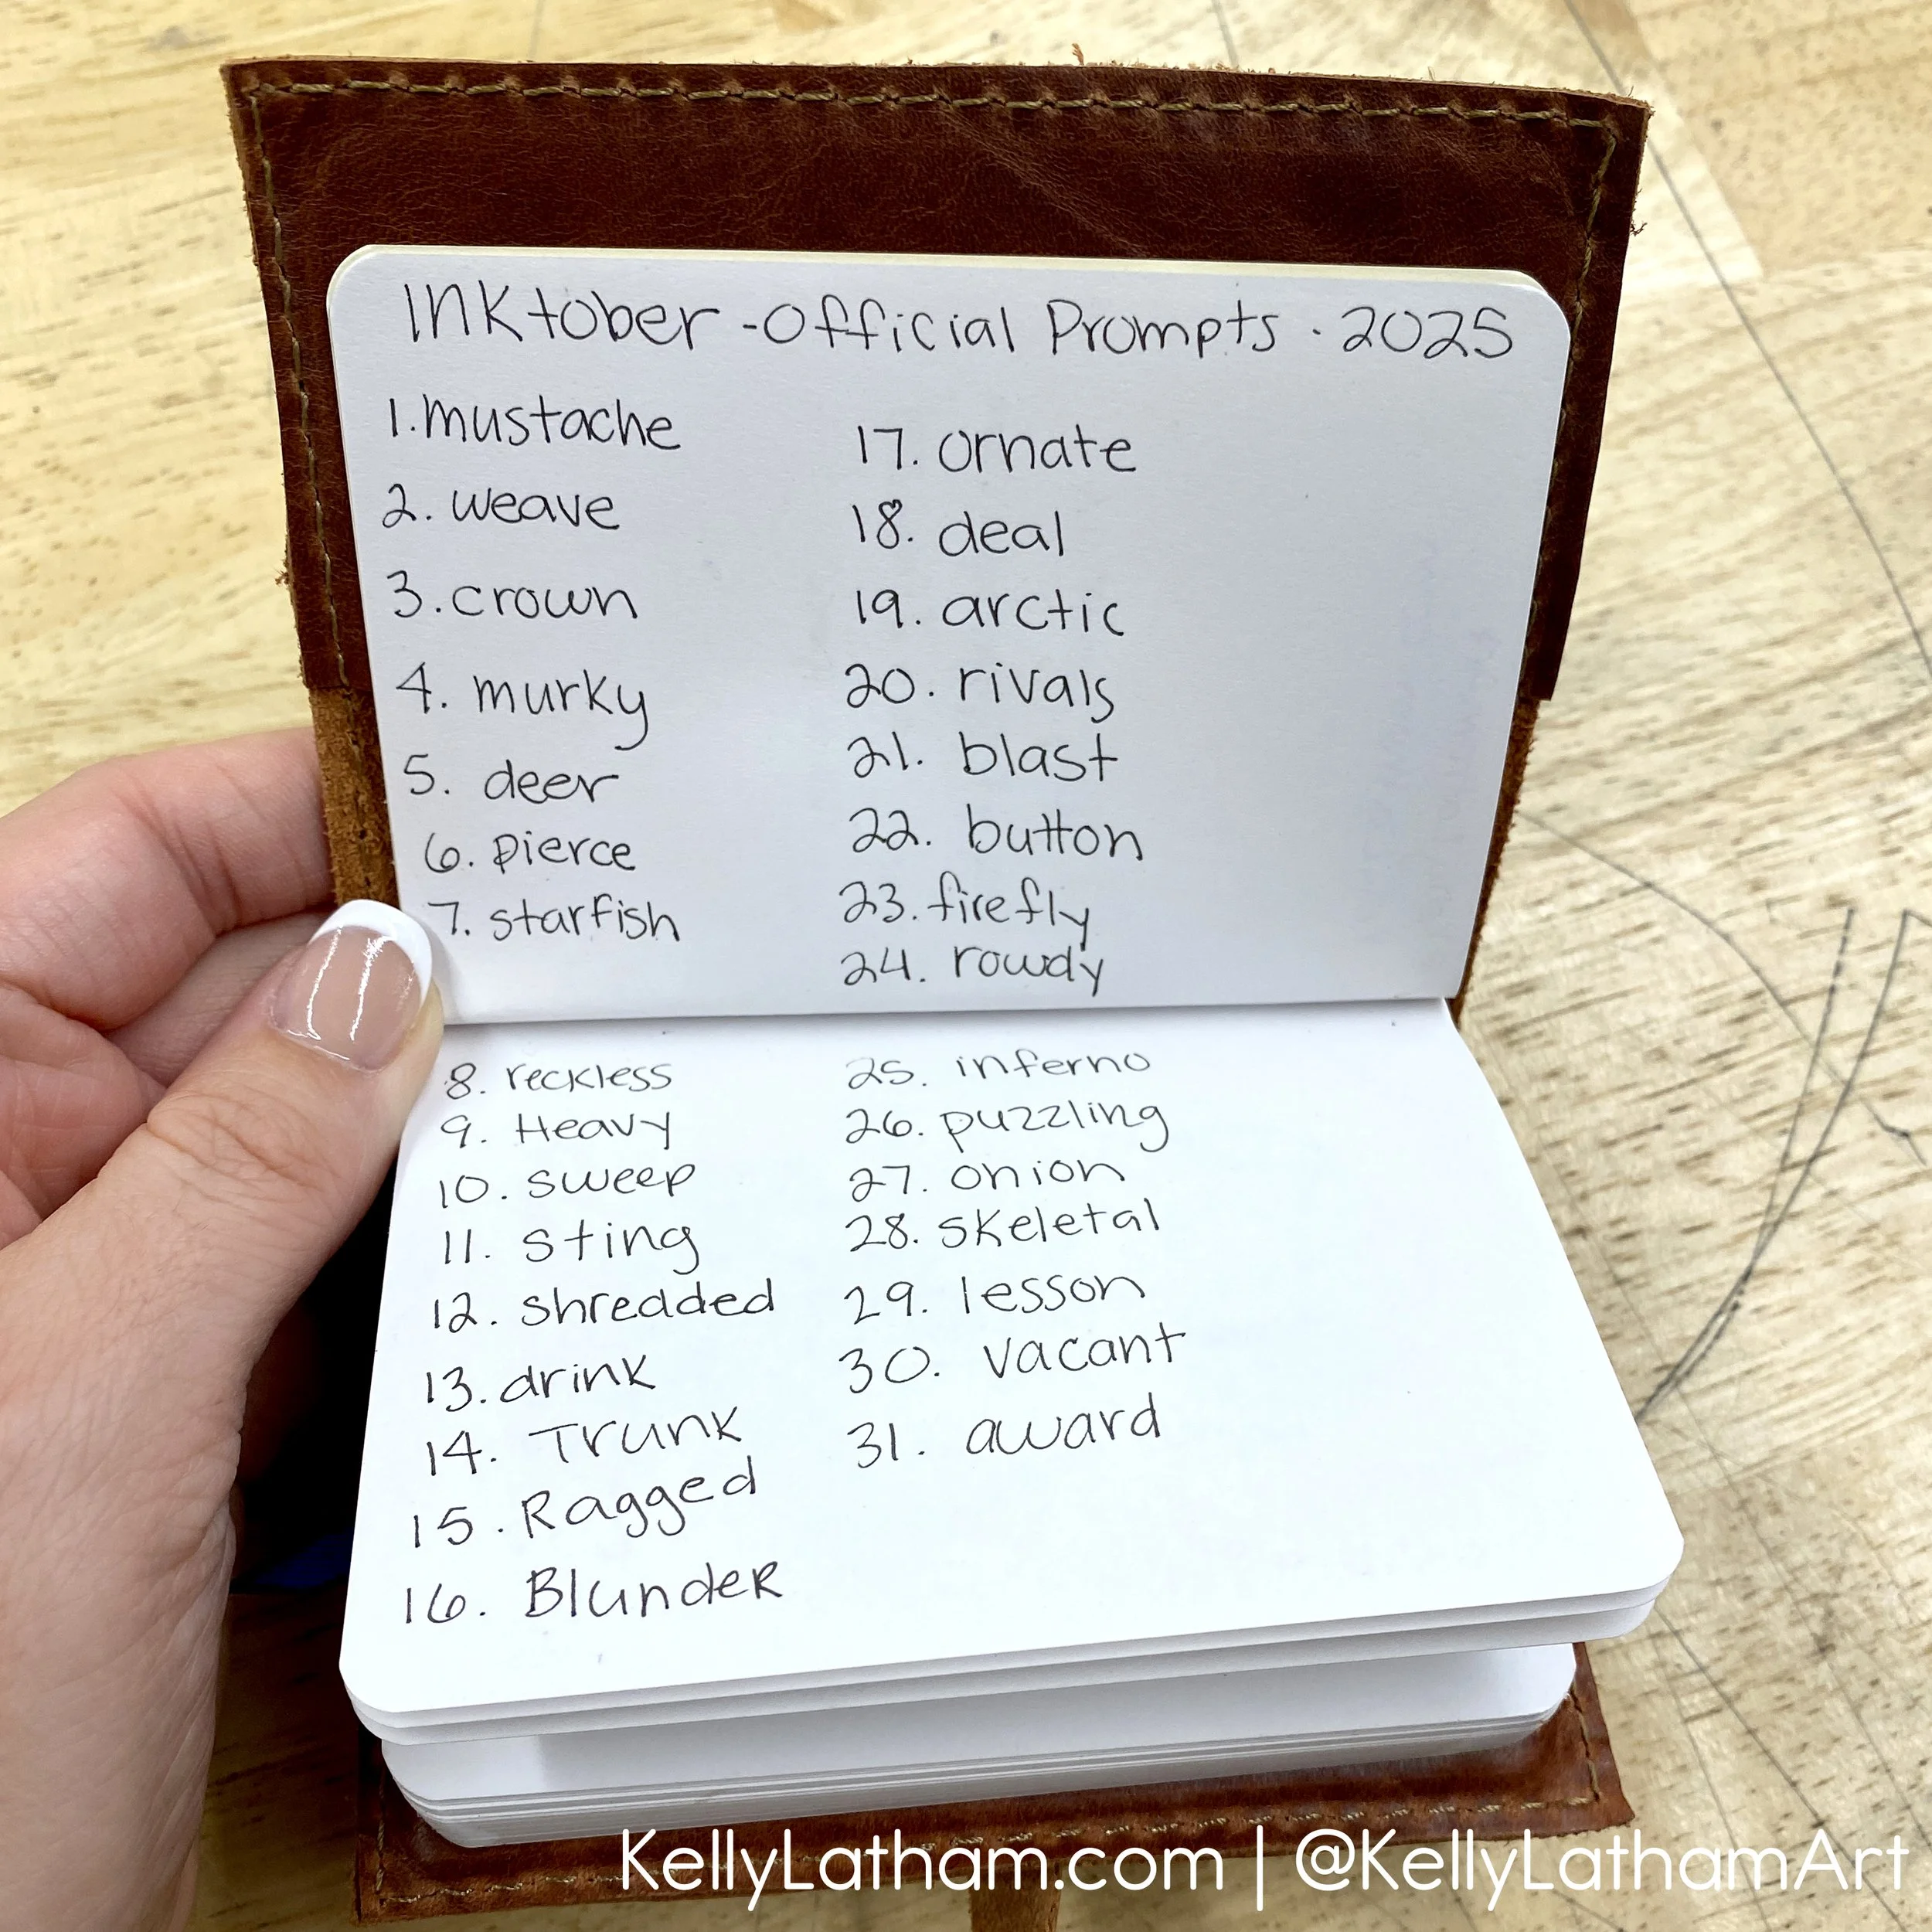 INKtober - Official Prompts · 2025
1. mustache
2. weave
3. crown
4. murky
5. deer
6. pierce
7. starfish
8. reckless
9. Heavy
10. sweep
11. sting
12. shredded
13. drink
14. Trunk
15. Ragged
16. Blunder
17. ornate
18. deal
19. arctic
20. rivals
21. blast
22. button
23. firefly
24. rowdy
25. inferno
26. puzzling
27. onion
28. skeletal
29. lesson
30. vacant
31. award
KellyLatham.com | @KellyLathamArt